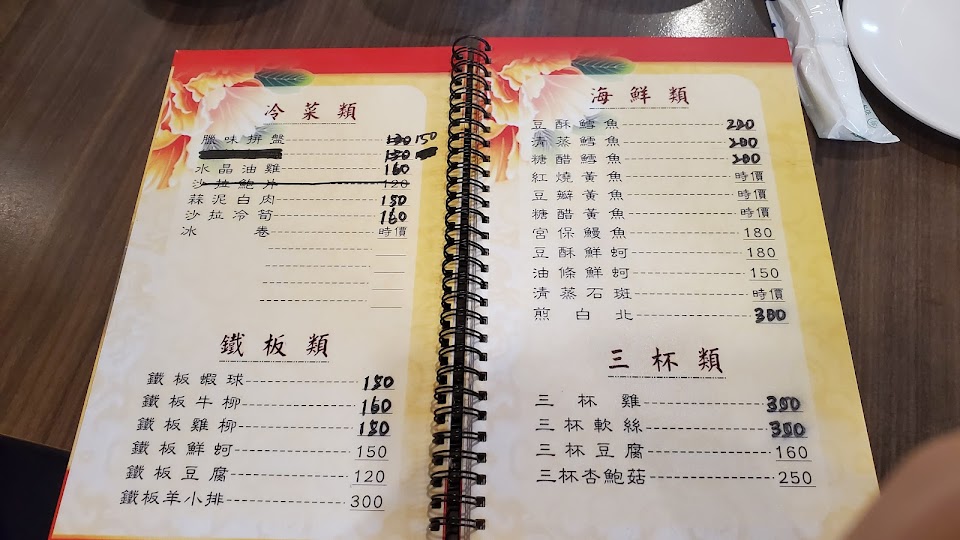 冷菜類
臘味拼盤 150
水晶油雞 160
沙拉鮑片 120
蒜泥白肉 150
沙拉冷筍 160
冰卷 時價
鐵板類
鐵板蝦球 150
鐵板牛柳 160
鐵板雞柳 150
鐵板鮮蚵 150
鐵板豆腐 120
鐵板羊小排 300
海鮮類
豆酥鱈魚 200
清蒸鱈魚 200
糖醋鱈魚 200
紅燒黃魚 時價
豆瓣黃魚 時價
糖醋黃魚 時價
宮保鰻魚 180
豆酥鮮蚵 180
油條鮮蚵 150
清蒸石斑 時價
煎白北 300
三杯類
三杯雞 300
三杯軟絲 300
三杯豆腐 160
三杯杏鮑菇 250